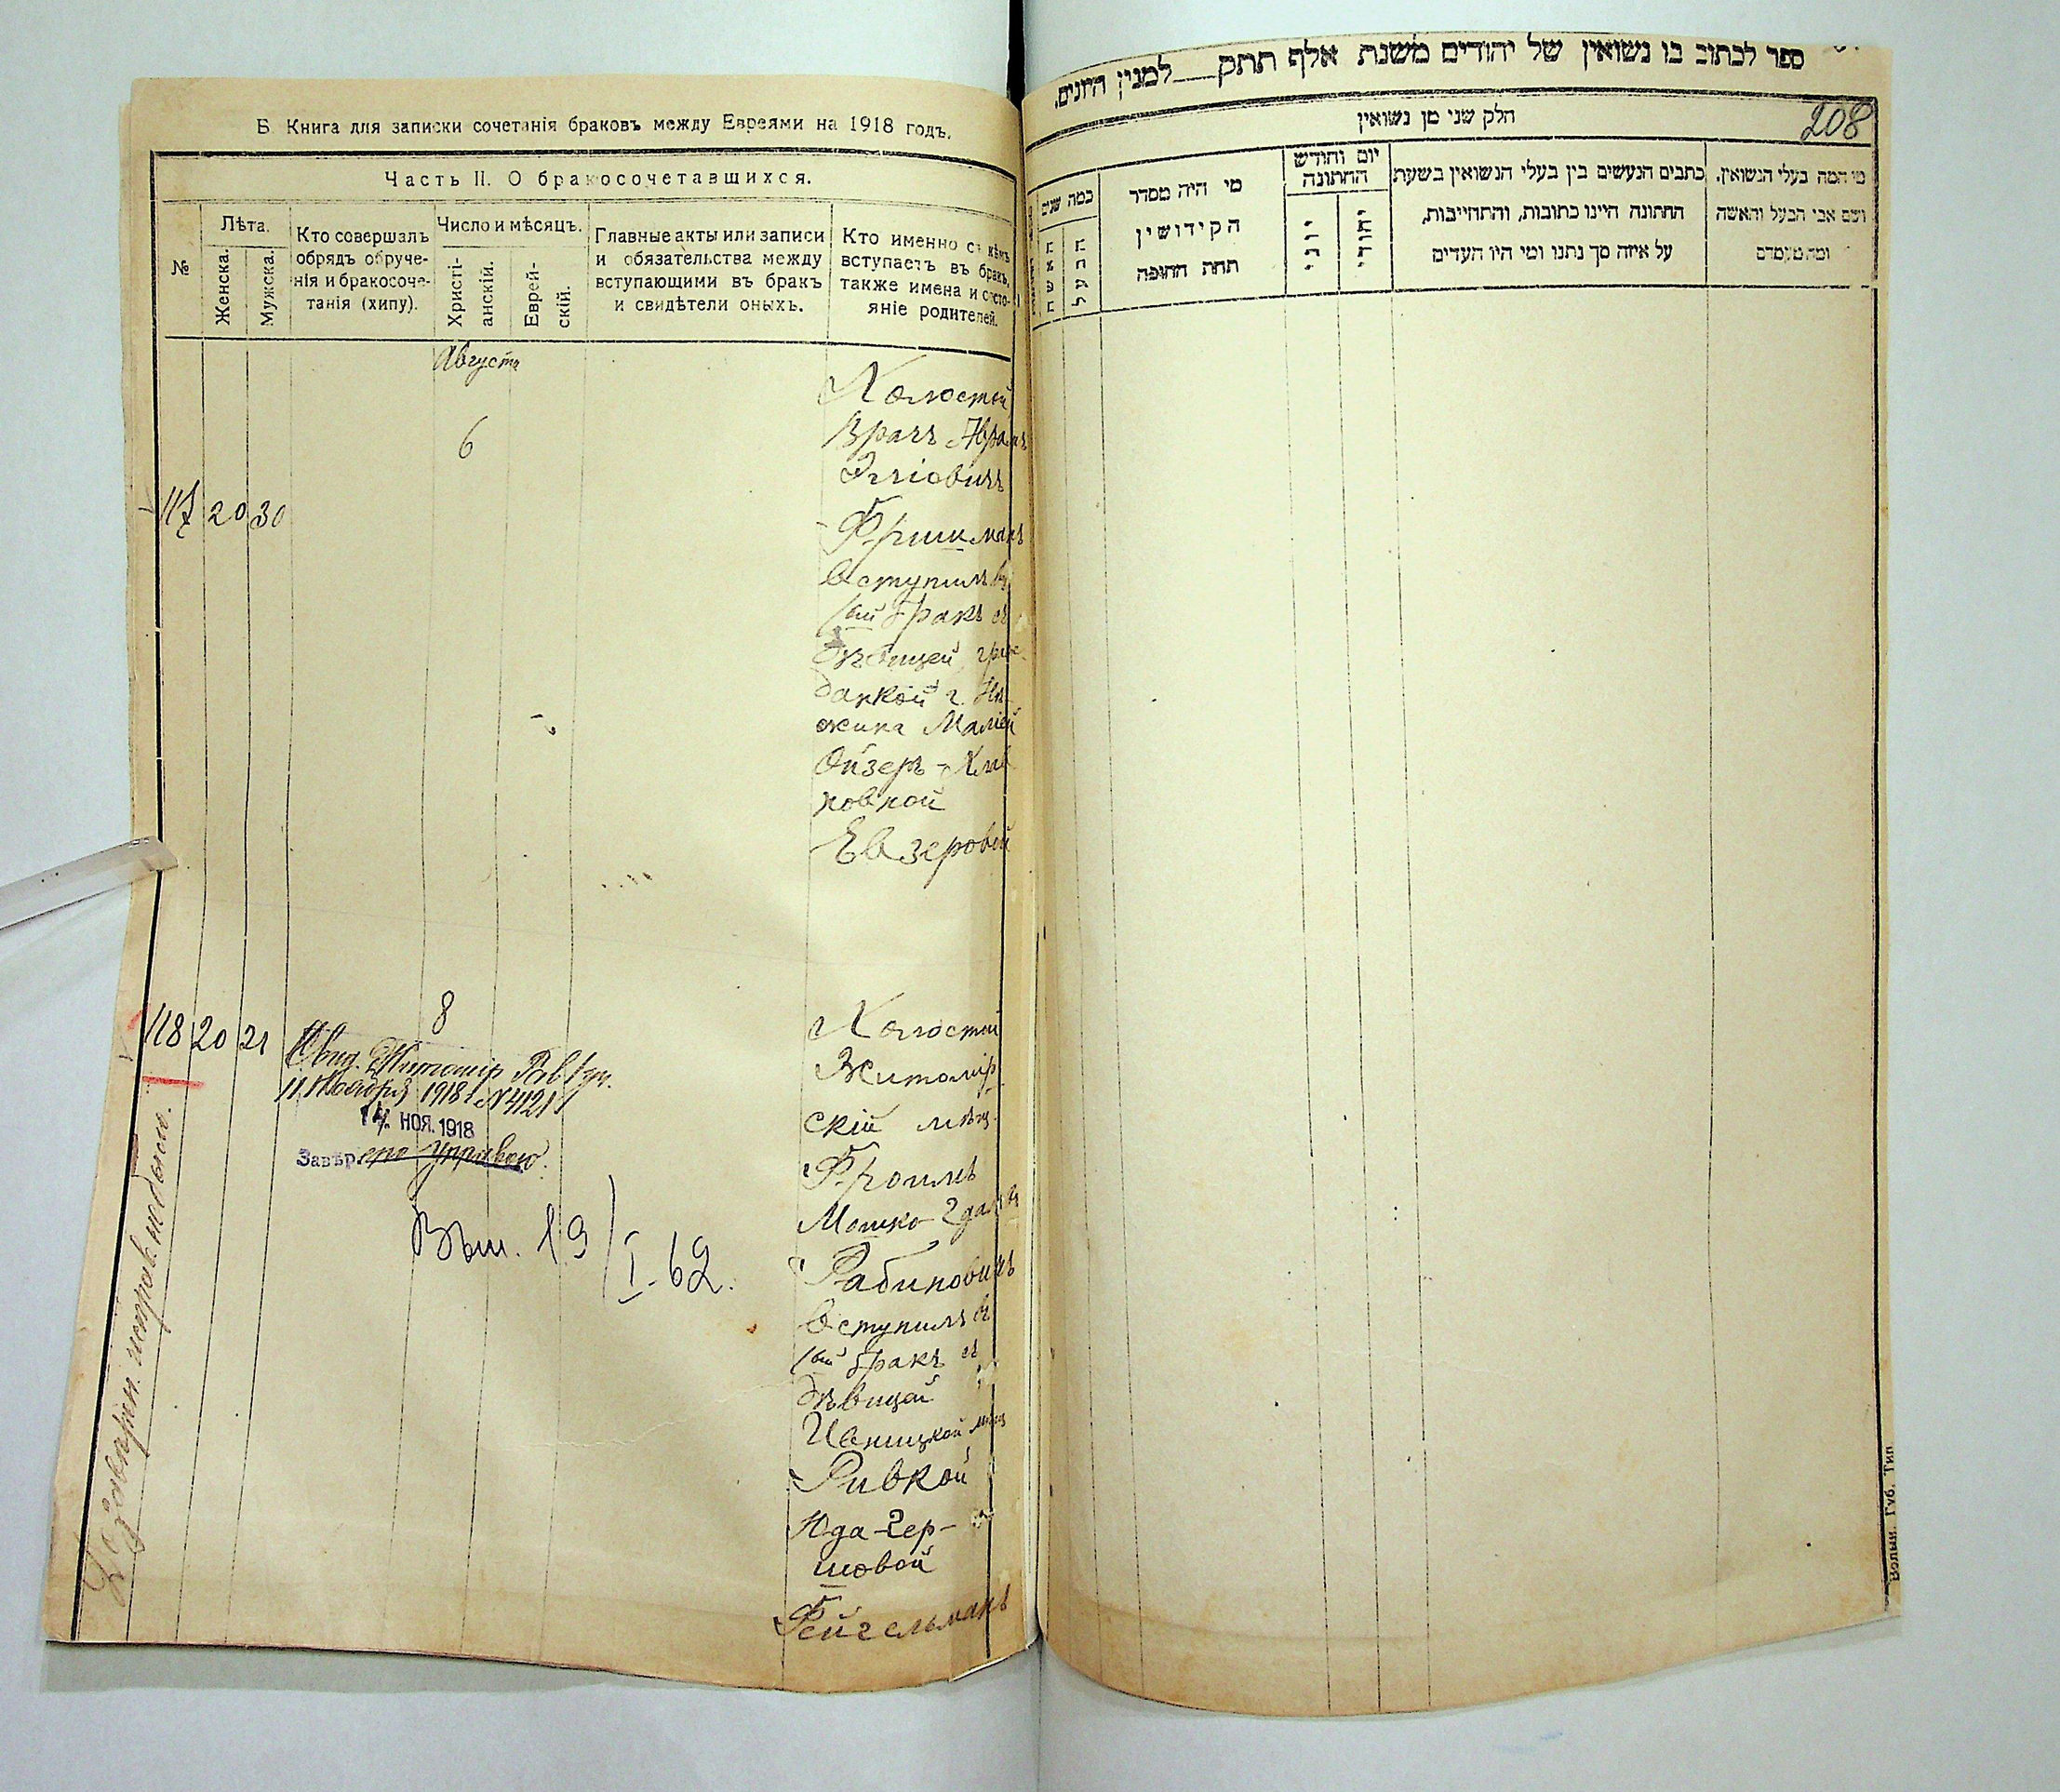 Б Книга для записки сочетанія браковъ между Евреями на 1918 годъ.
Часть II. О бракосочетавшихся.
№
Лѣта.
Женска.
Мужска.
Кто совершалъ
обрядъ обруче-
нія и бракосоче-
танія (хипу).
Число и мѣсяцъ.
Христі-
анскій.
Еврей-
скій.
Главные акты или записи
и обязательства между
вступающими въ бракъ
и свидѣтели оныхъ.
Кто именно съ кѣмъ
вступаетъ въ бракъ,
также имена и состо-
яніе родителей.
Августа
6
117 20 30
Холостой
Врачъ Абрамъ
Эліовичъ
Фришманъ
вступилъ въ
1ый бракъ съ
дѣвицей граж-
данкой г. Нѣ-
жина Маліей
Ойзеръ-
новной
Евзеровой
8
118 20 21
Свид. Житомір Рав
11 Ноября 1918 г. № 4121
14 НОЯ. 1918
Завѣр. управою.
Вып. 19/I-62.
Холостой
Житомір-
скій мѣщ.
Фроимъ
Мошко-
Рабиновичъ
вступилъ въ
1ый бракъ съ
дѣвицей
Ивницкой мѣщ
Ривкой
Юда-Гер-
шовой
Фейгельманъ
ספר לכתוב בו נשואין של יהודים משנת אלף תתק___למנין היונים.
208
חלק שני מן נשואין
כמה שנים
האשה
הבעל
מי היה מסדר
הקידושין
תחת החופה
יום וחודש
החתונה
יוני
יהודי
כתבים הנעשים בין בעלי הנשואין בשעת
החתונה היינו כתובות, והתחייבות,
על איזה סך נתנו ומי היו העדים
מי המה בעלי הנשואין,
ושם אבי הבעל והאשה
ומה מעמדם
Волын. Губ. Тип